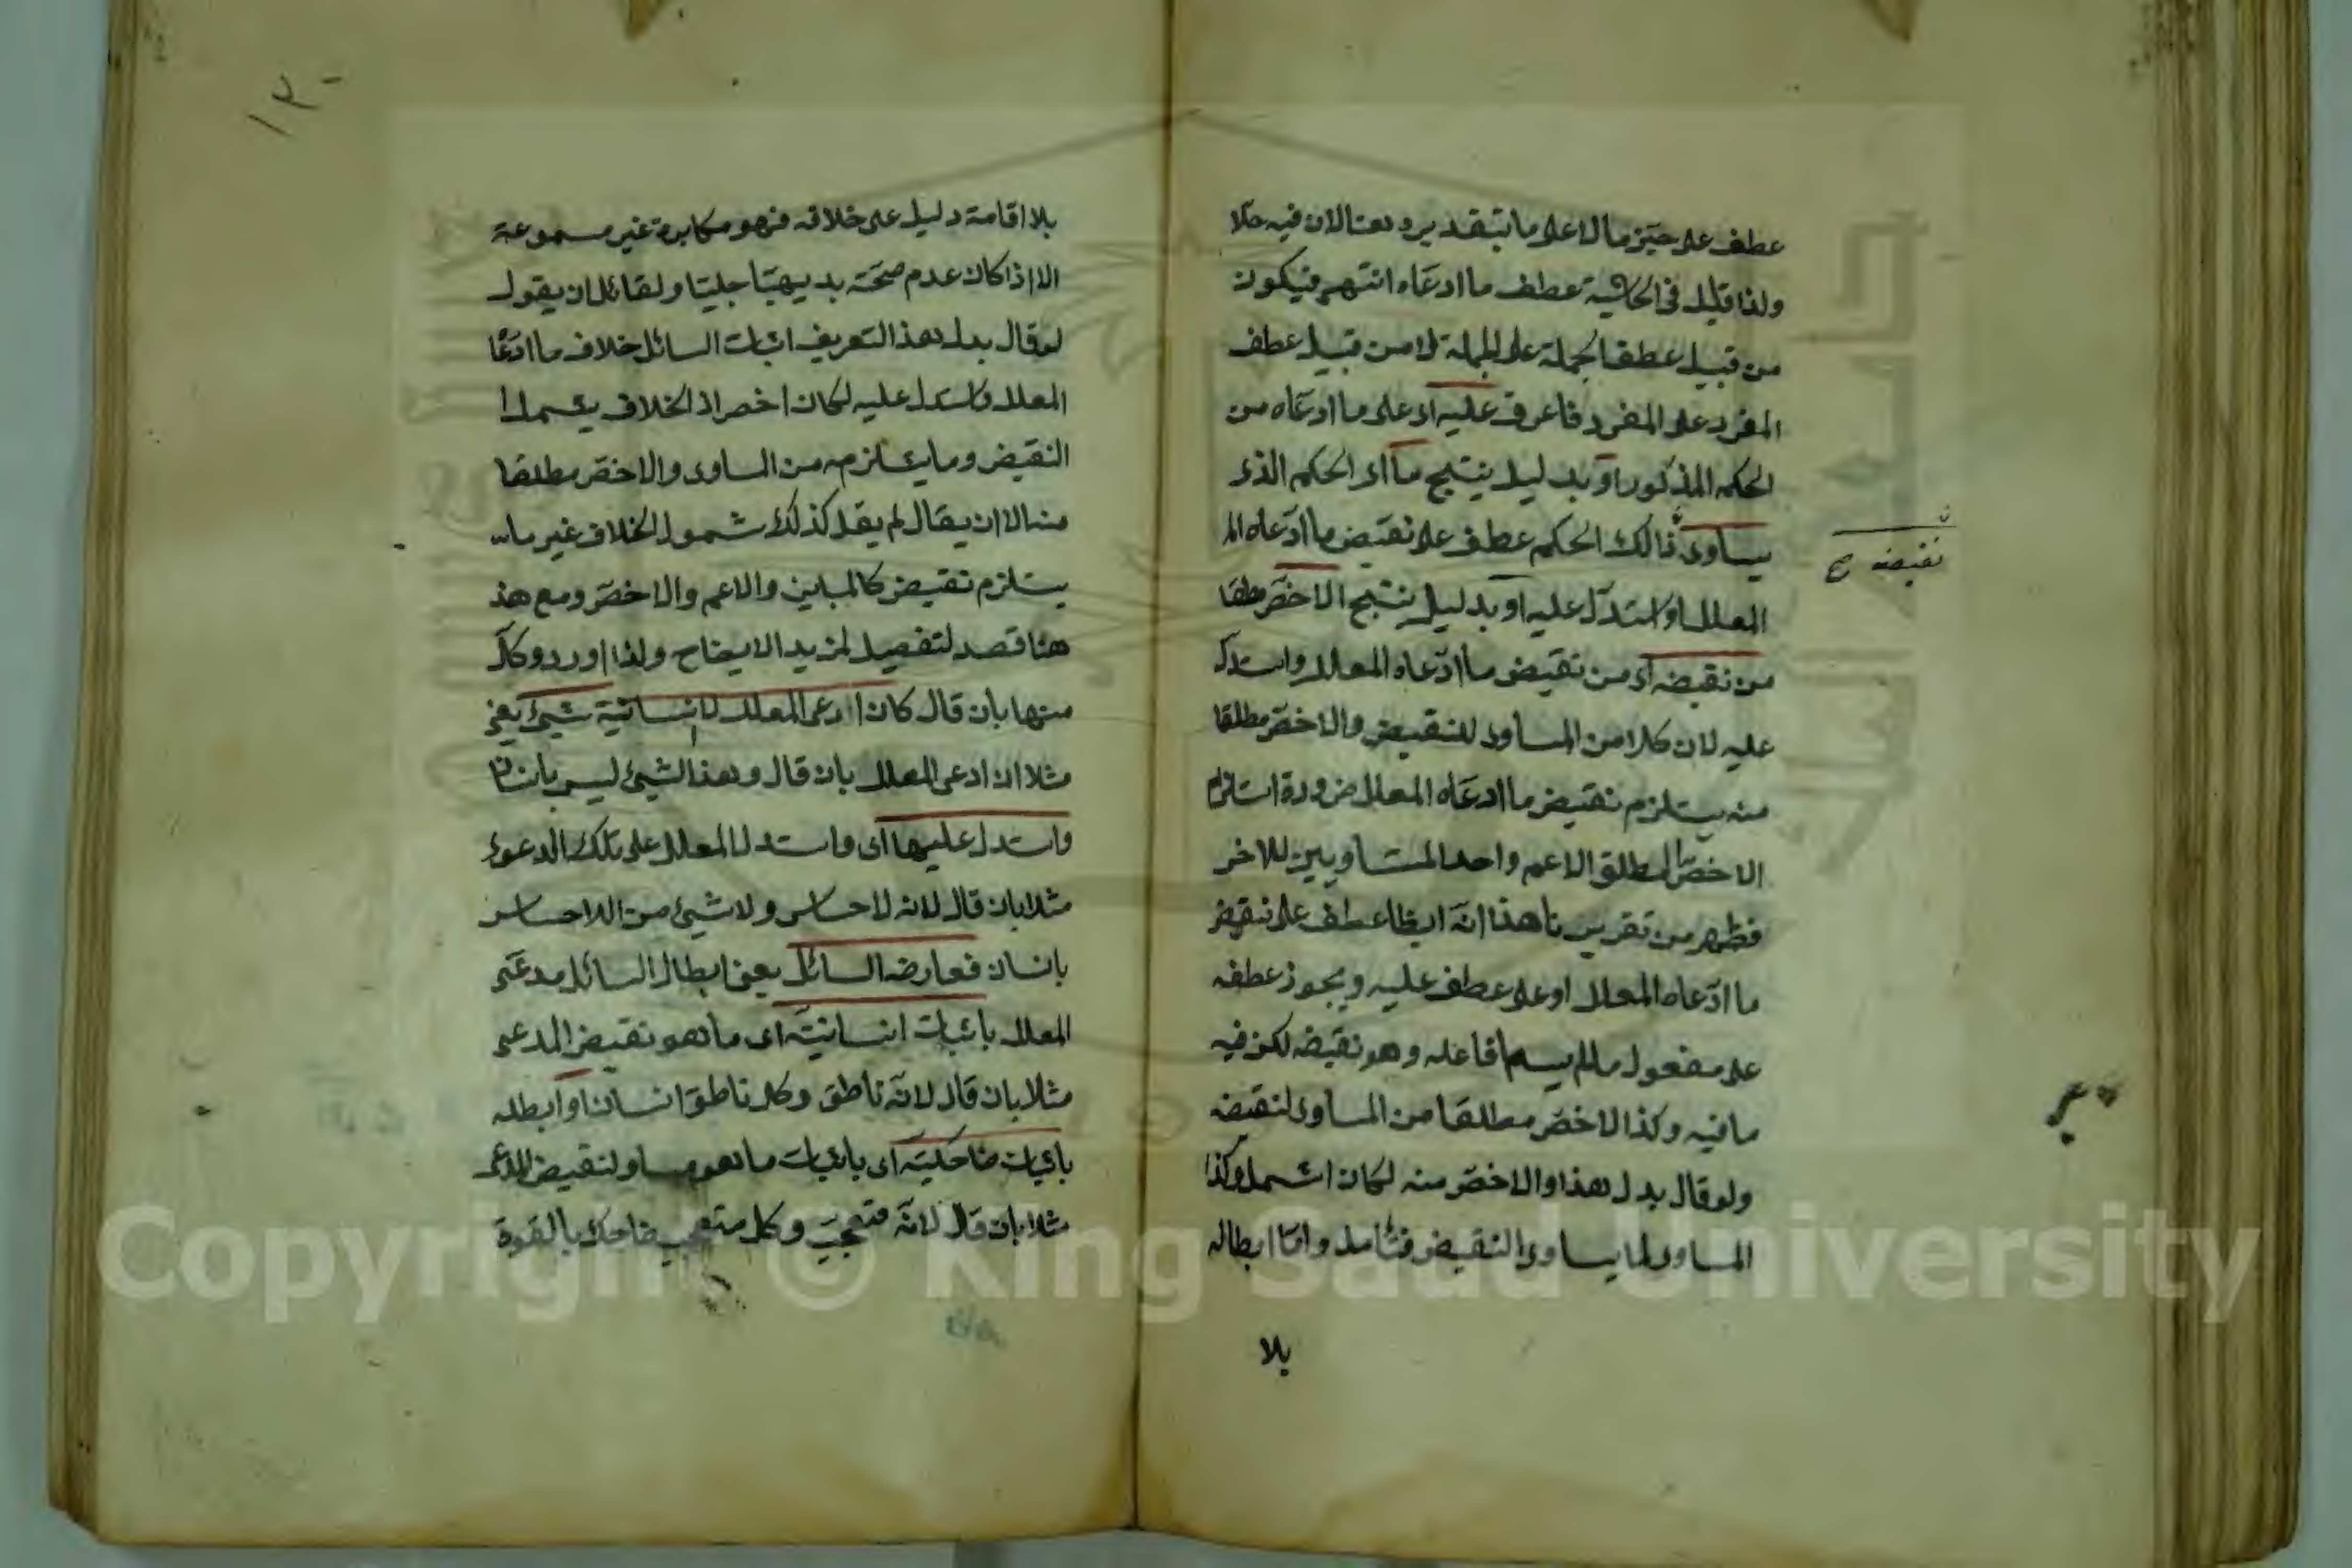 عطف على حيز ما لا على ما بتقدير وهنا لان فيه حلا
ولذا قيل فى الحاشية عطف ما ادعاه انتهى فيكون
من قبيل عطف الجملة على الجملة لا من قبيل عطف
المفرد على المفرد فاعرف عليه اى على ما ادعاه من
الحكم المذكور او بدليل ينتج ما اى الحكم الذى
يساوى ذالك الحكم عطف على نقيض ما ادعاه الم
نقيضه صح
المعلل واستدل عليه او بدليل ينتج الاخص مطلقا
من نقيضه اى من نقيض ما ادعاه المعلل واستدل
عليه لان كلا من المساوى للنقيض والاخص مطلقا
منه يستلزم نقيض ما ادعاه المعلل ضرورة استلزام
الاخص المطلق الاعم واحد المتساويين للاخر
فظهر من تقريرنا هذا انه ايضا عطف على نقيض
ما ادعاه المعلل او على عطف عليه ويجوز عطفه
على مفعول ما لم يسم فاعله وهو نقيضه لكن فيه
ما فيه وكذا الاخص مطلقا من المساوى لنقيضه
ولو قال بدل هذا والاخص منه لكان اشمل وكذا
المساوى لما يساوى النقيض فتأمل واما ابطاله
بلا
١٢٠
بلا اقامة دليل على خلافه فهو مكابرة غير مسموعة
الا اذا كان عدم صحته بديهيا جليا ولقائل ان يقول
لو قال بدل هذا التعريف اثبات السائل خلاف ما ادعا
المعلل واستدل عليه لكان اخصر اذ الخلاف يشمل
النقيض وما يستلزمه من المساوى والاخص مطلقا
منه الا ان يقال لم يقل كذلك شمول الخلاف غير ما
يستلزم نقيض كالمباين والاعم والاخص ومع هذ
هنا قصد لتفصيل لمزيد الايضاح ولذا اورد وكل
منها بان قال كان ادعى المعلل لا انسانية شيئ يعنى
مثلا ان ادعى المعلل بان قال وهذا الشيئ ليس بانسا
واستدل عليها اى واستدل المعلل على تلك الدعوى
مثلا بان قال لانه لا حساس ولا شيئ من اللاحساس
بانسان فعارضه السائل يعنى ابطال السائل مدعى
المعلل باثبات انسانيته اى ما هو نقيض المدعى
مثلا بان قال لانه ناطق وكل ناطق انسان او ابطله
باثبات ضاحكيته اى باثبات ما هو مساو لنقيض المدعى
مثلا بان قال لانه متعجب وكل متعجب ضاحك بالقوة
Copyright © King Saud University